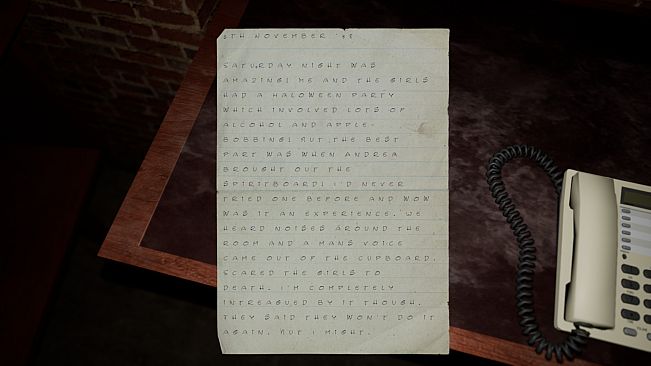 TH NOVEMBER '98
SATURDAY NIGHT WAS
AMAZING! ME AND THE GIRLS
HAD A HALOWEEN PARTY
WHICH INVOLVED LOTS OF
ALCOHOL AND APPLE-
BOBBING! BUT THE BEST
PART WAS WHEN ANDREA
BROUGHT OUT THE
SPIRITBOARD! I'D NEVER
TRIED ONE BEFORE AND WOW
WAS IT AN EXPERIENCE. WE
HEARD NOISES AROUND THE
ROOM AND A MANS VOICE
CAME OUT OF THE CUPBOARD.
SCARED THE GIRLS TO
DEATH. I'M COMPLETELY
INTREAGUED BY IT THOUGH.
THEY SAID THEY WON'T DO IT
AGAIN. BUT I MIGHT.